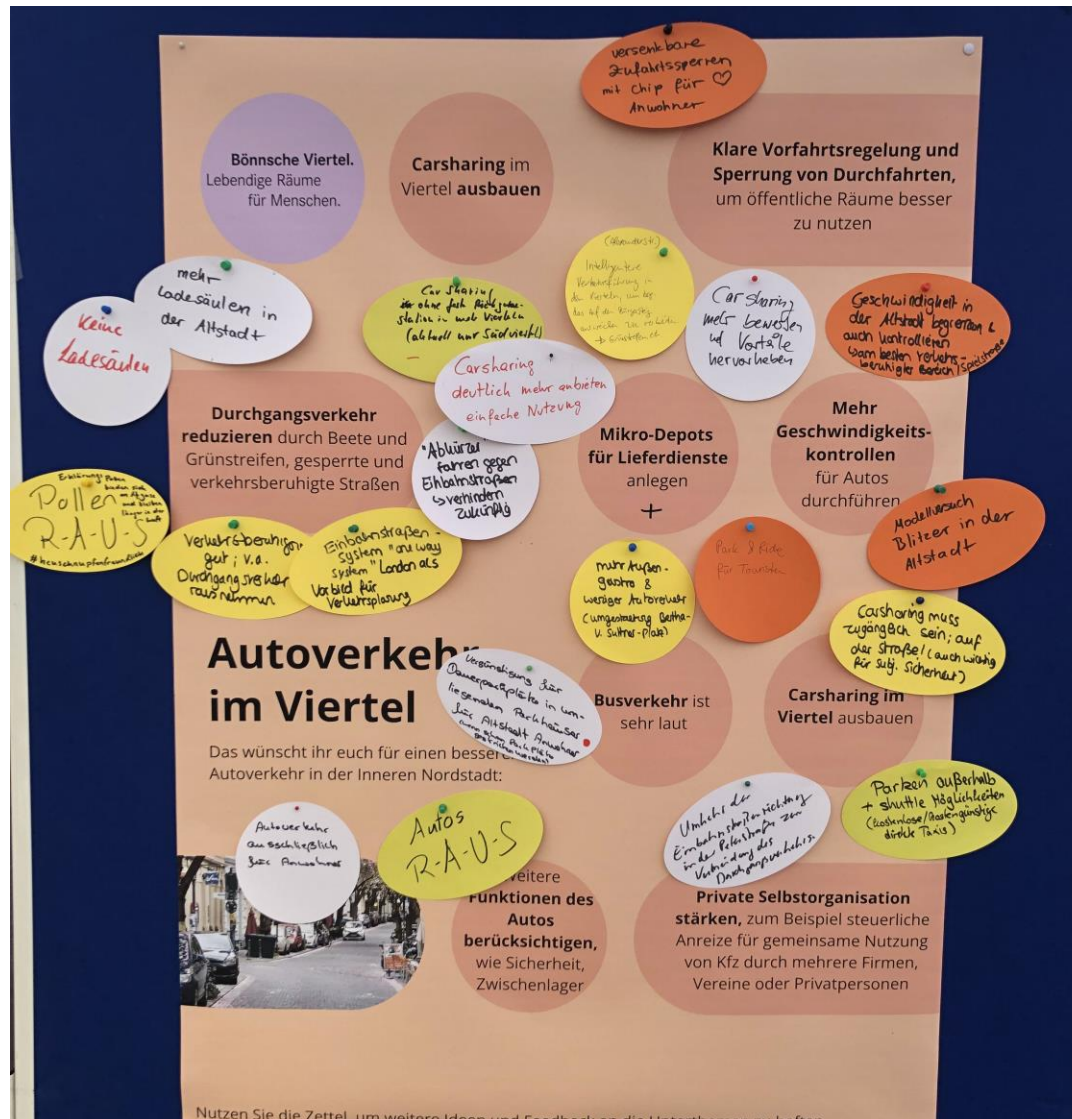 versenkbare
Zufahrtssperren
mit Chip für ♡
Anwohner
Bönnsche Viertel.
Lebendige Räume
für Menschen.
Carsharing im
Viertel ausbauen
Klare Vorfahrtsregelung und
Sperrung von Durchfahrten,
um öffentliche Räume besser
zu nutzen
mehr
Ladesäulen in
der Altstadt
Keine
Ladesäulen
Car Sharing
ohne
station in
(aktuell nur Südviertel)
Intelligentere
Verkehrsführung in
den Vierteln, um
das auf den
Car sharing
mehr bewerben
und Vorteile
hervorheben
Geschwindigkeit in
der Altstadt begrenzen &
auch kontrollieren
am besten verkehrs-
beruhigter Bereich/Spielstraße
Carsharing
deutlich mehr anbieten
einfache Nutzung
Durchgangsverkehr
reduzieren durch Beete und
Grünstreifen, gesperrte und
verkehrsberuhigte Straßen
"Abkürzer
fahren gegen
Einbahnstraßen
↳ verhindern
zukünftig
Mikro-Depots
für Lieferdienste
anlegen
+
Mehr
Geschwindigkeits-
kontrollen
für Autos
durchführen
Pollen
R-A-U-S
Verkehrsberuhigung
gut; v.a.
Durchgangsverkehr
rausnehmen
Einbahnstraßen-
system "one way
system" London als
Vorbild für
Verkehrsplanung
mehr Außen-
gastro &
weniger Autoverkehr
(Umgestaltung Bertha-
v. Suttner-Platz)
Park & Ride
für Touristen
Modellversuch
Blitzer in der
Altstadt
Carsharing muss
zugänglich sein; auf
der Straße! (auch wichtig
für subj. Sicherheit)
Autoverkehr
im Viertel
Das wünscht ihr euch für einen besseren
Autoverkehr in der Inneren Nordstadt:
Vergünstigung für
Dauerparkplätze in um-
liegenden Parkhäuser
für Altstadt Anwohner
Busverkehr ist
sehr laut
Carsharing im
Viertel ausbauen
Autoverkehr
ausschließlich
für Anwohner
Autos
R-A-U-S
Umkehr der
Einbahnstraßenrichtung
in der Peterstraße zur
Vermeidung des
Durchgangsverkehrs.
Parken außerhalb
+ shuttle Möglichkeiten
(kostenlose/kostengünstige
direkte Taxis)
Weitere
Funktionen des
Autos
berücksichtigen,
wie Sicherheit,
Zwischenlager
Private Selbstorganisation
stärken, zum Beispiel steuerliche
Anreize für gemeinsame Nutzung
von Kfz durch mehrere Firmen,
Vereine oder Privatpersonen
Nutzen Sie die Zettel, um weitere Ideen und Feedback an die